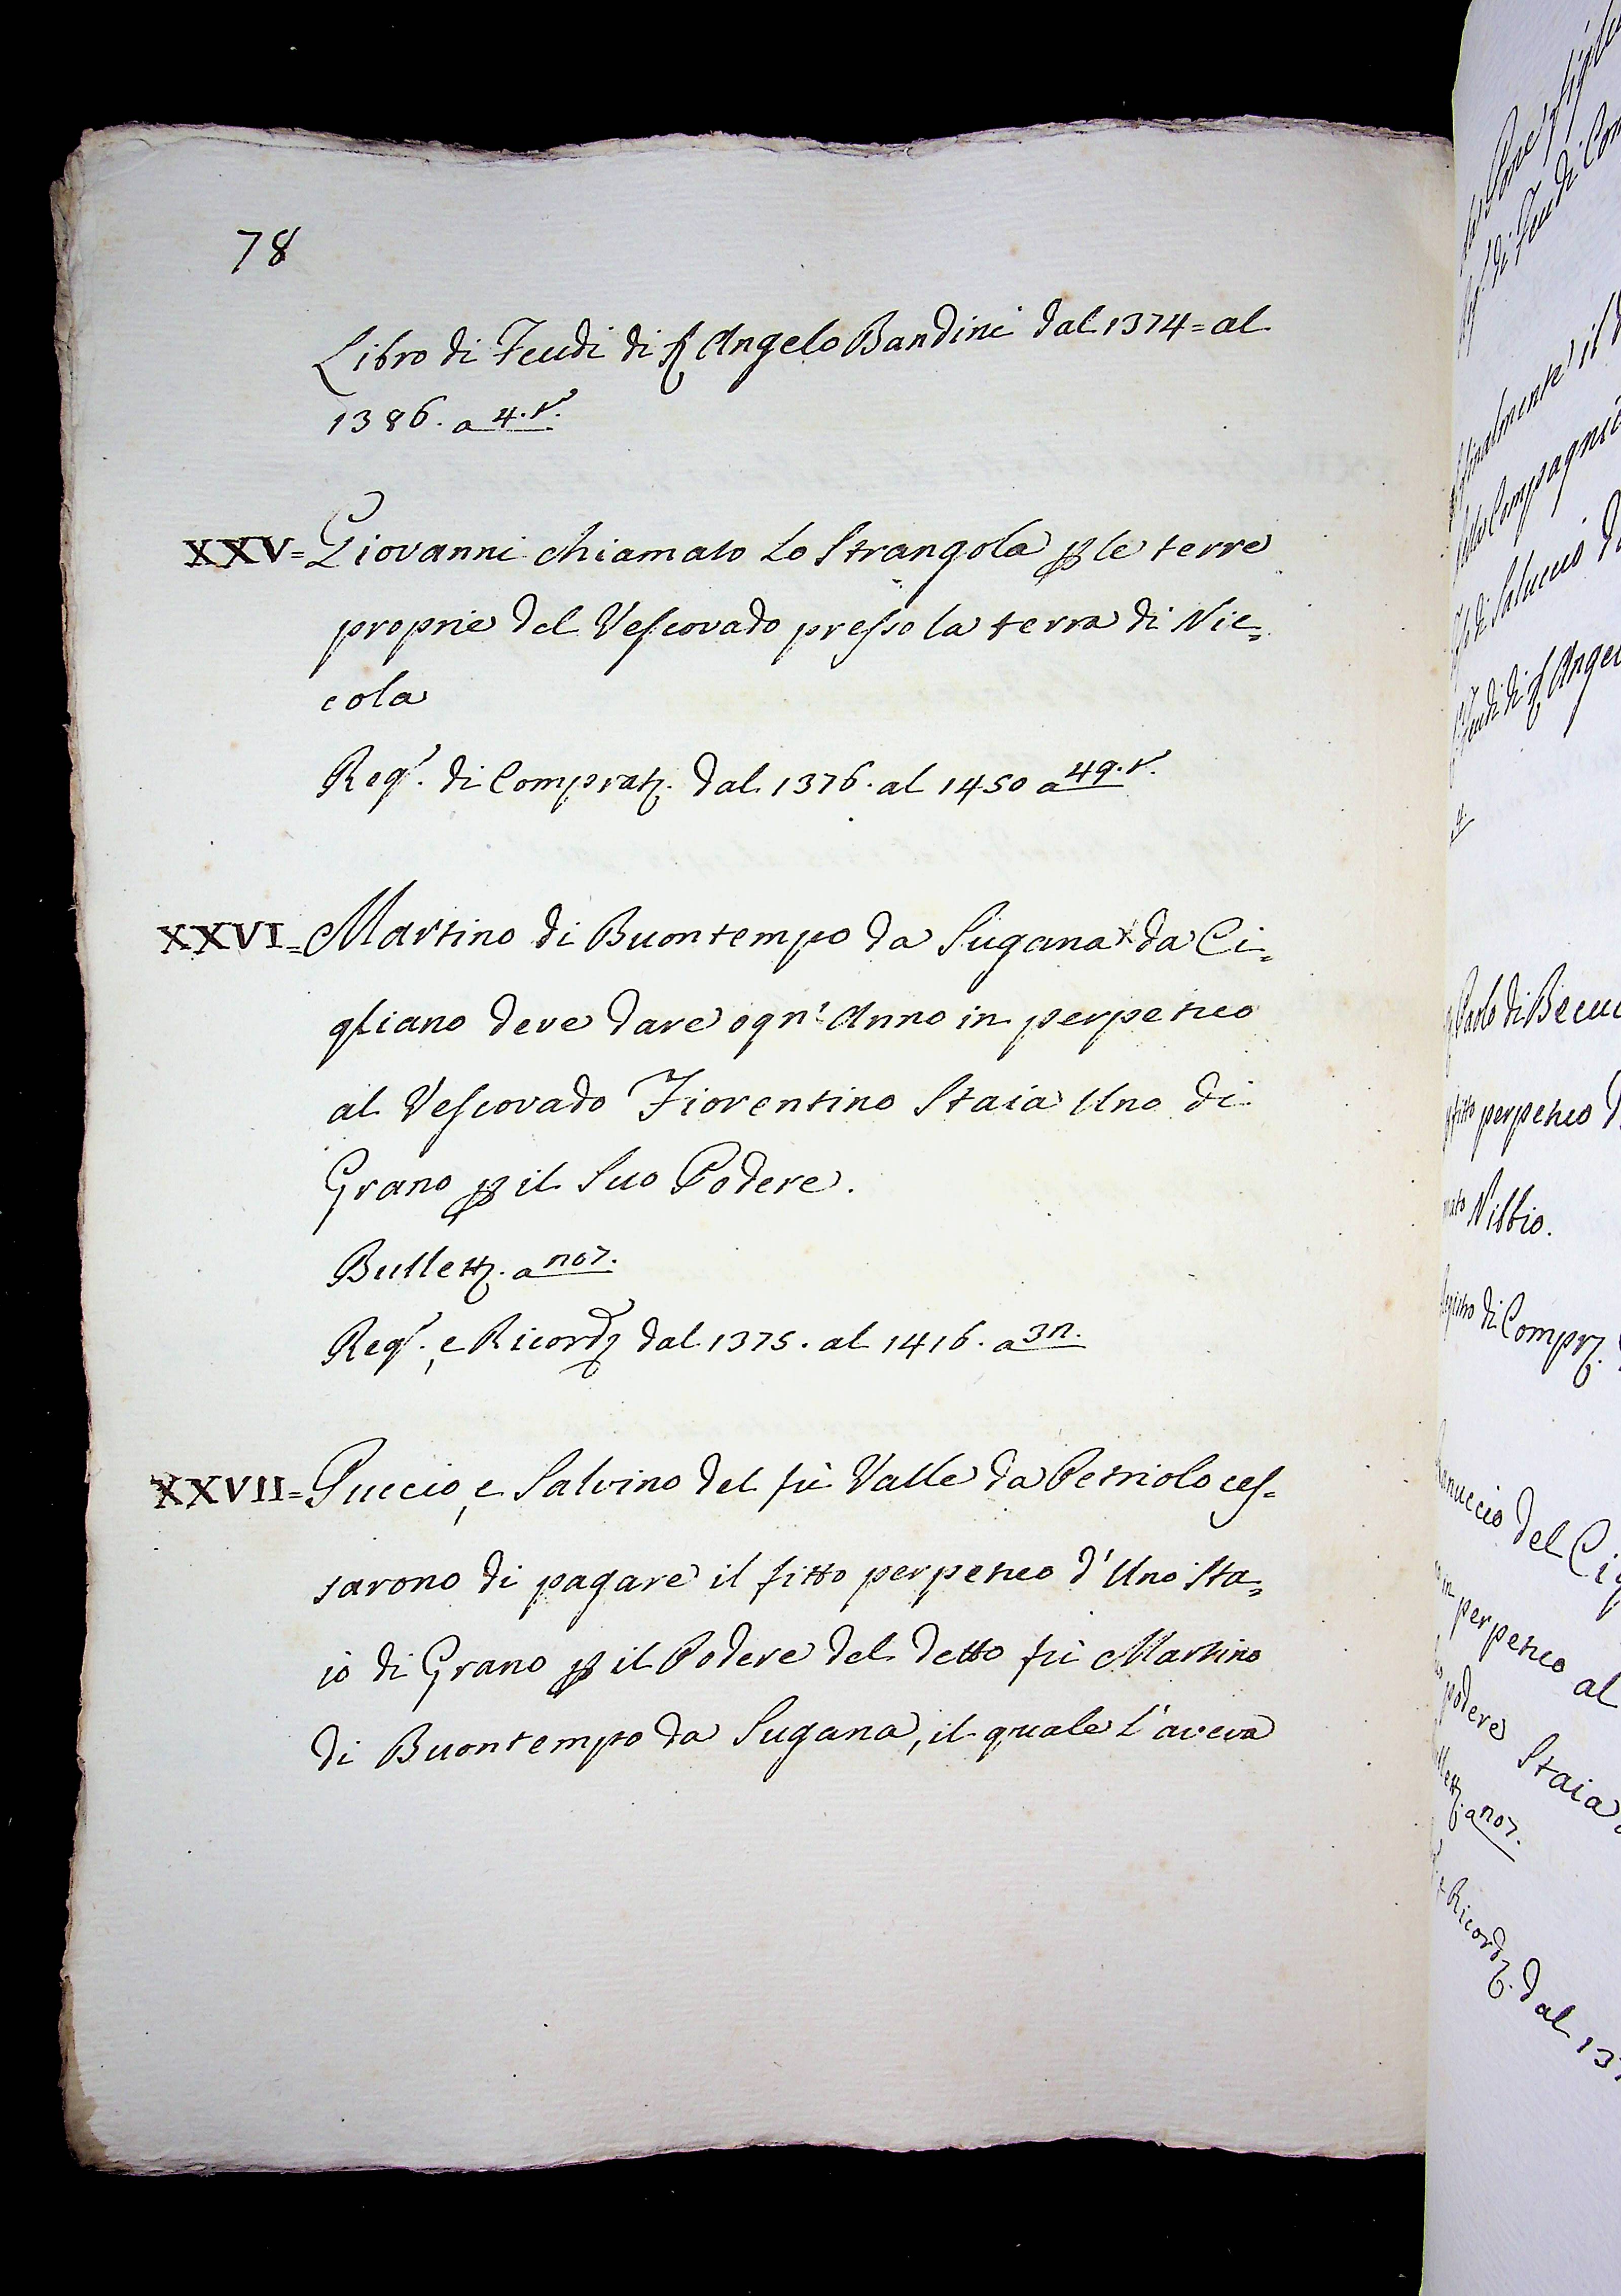 78
Libro di Feudi di S. Angelo Bandini dal 1374 = al
1386. a 4. r.
XXV = Giovanni chiamato Lo Strangola p le terre
proprie del Vescovado presso la terra di Nic=
cola
Reg.º di Compratz. dal 1376. al 1450 a 49. r.
XXVI = Martino di Buontempo da Sugana da Ci=
gliano deve dare ogn' Anno in perpetuo
al Vescovado Fiorentino Staia Uno di
Grano p il Suo Podere.
Bullett. a no7.
Reg.º e Ricordz dal 1375. al 1416. a 3n.
XXVII = Puccio, e Salvino del fù Valle da Petriolo ces=
sarono di pagare il fitto perpetuo d' Uno Sta=
io di Grano p il Podere del detto fù Martino
di Buontempo da Sugana, il quale l'aveva
finalmente il
Compagni
di Salucci
Feudi di S. Angel
Paolo di Becu
fitto perpetuo
Nibbio.
di Compr.
anuccio del Ci
in perpetuo al
podere Staia
a no7.
e Ricordz. dal 137